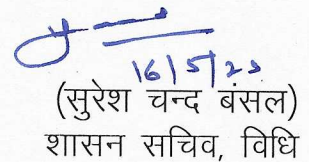 16/5/23
(सुरेश चन्द बंसल)
शासन सचिव, विधि